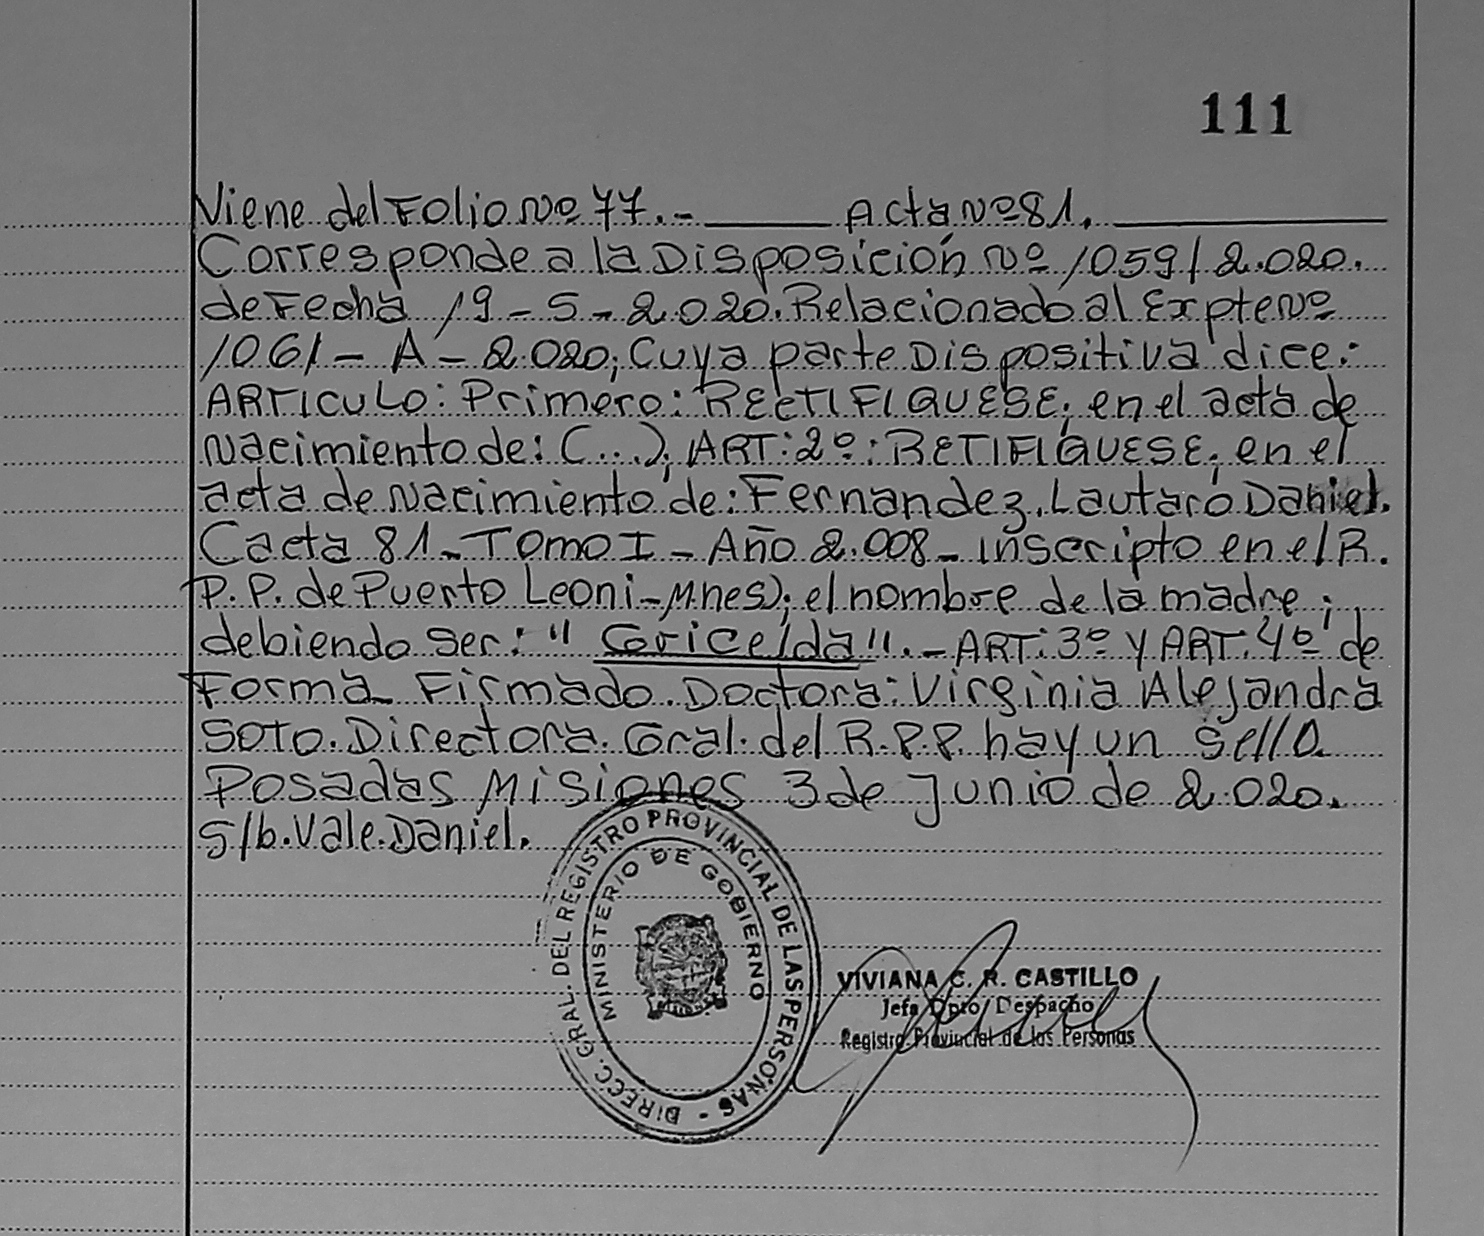 111
Viene del Folio Nº 77.- ______ Acta Nº 81. ______
Corresponde a la Disposición Nº 1059/2.020.
de Fecha 19-5-2.020. Relacionado al Expte Nº
1061-A-2.020; Cuya parte Dispositiva dice:
ARTICULO: Primero: RECTIFIQUESE; en el acta de
Nacimiento de: (...); ART: 2º: RETIFIQUESE; en el
acta de Nacimiento de: Fernandez, Lautaro Daniel.
(acta 81-Tomo I-Año 2.008-Inscripto en el R.
P.P. de Puerto Leoni-Mnes); el nombre de la madre;
debiendo ser: "Gricelda".- ART: 3º Y ART. 4º de
Forma Firmado. Doctora: Virginia Alejandra
Soto. Directora. Gral. del R.P.P. hay un Sello.
Posadas Misiones 3 de Junio de 2.020.
S/b. Vale. Daniel.
DIRECC. GRAL. DEL REGISTRO PROVINCIAL DE LAS PERSONAS -
MINISTERIO DE GOBIERNO
VIVIANA C. R. CASTILLO
Jefa Dpto. Despacho
Registro Provincial de las Personas